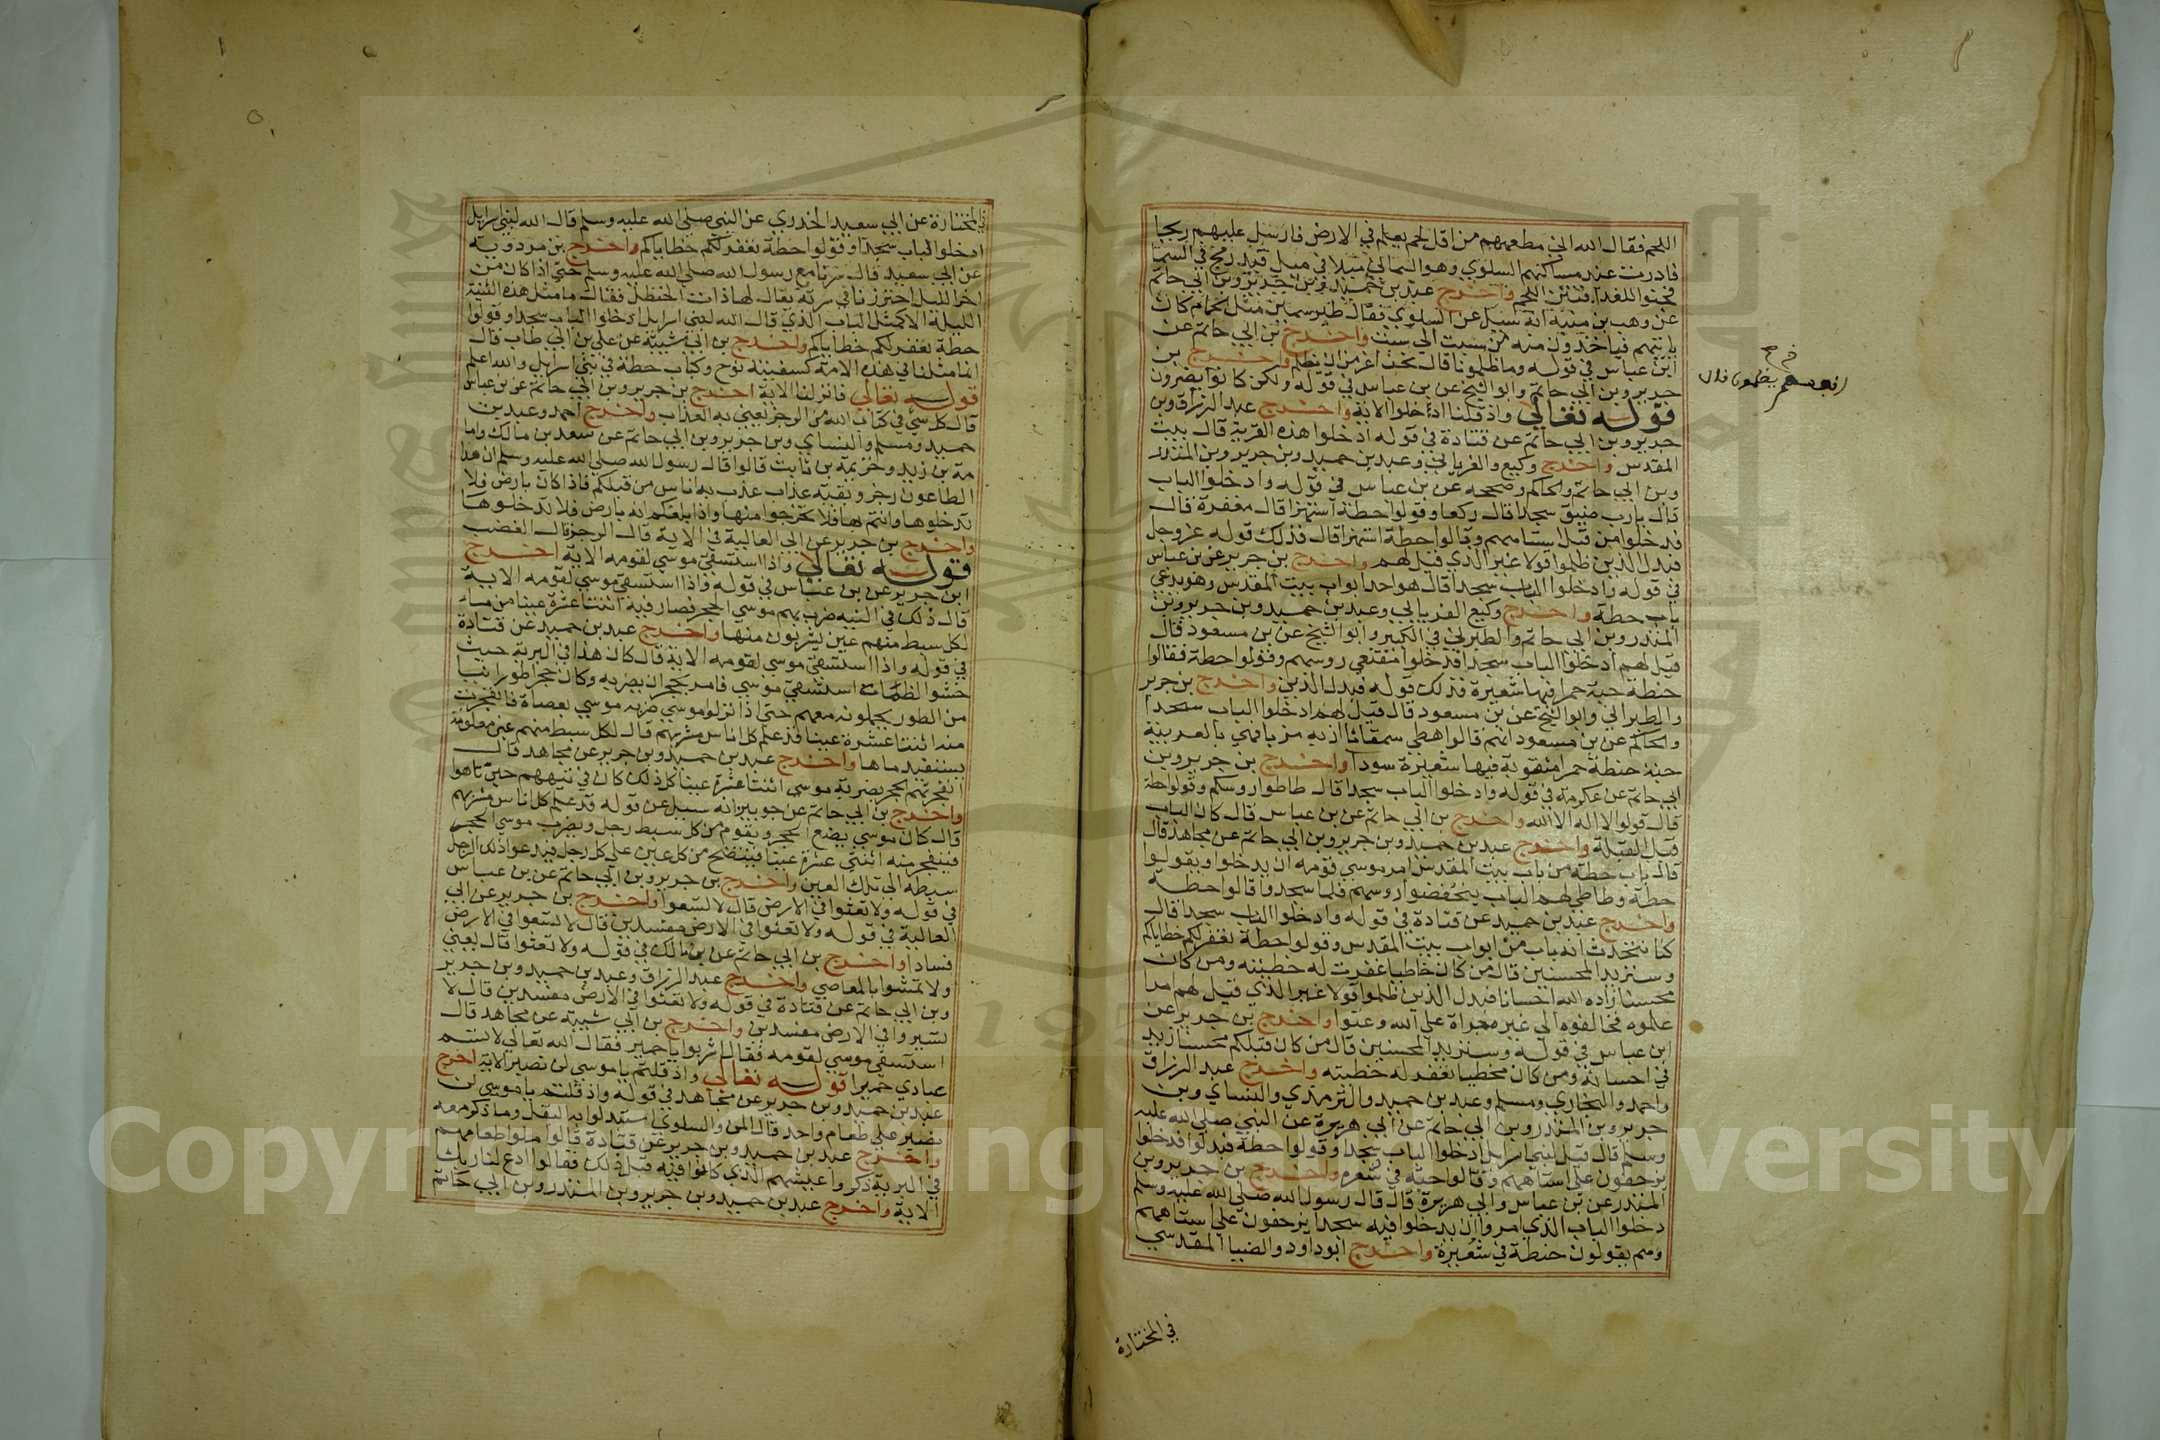 اللحم فقال الله اني مطعمهم من اقل لحم يعلم في الارض فارسل عليهم ريحا
فاذرت عند مساكنهم السلوي وهو السماني ميلا في ميل قيد رمح في السما
فخبوا للغد فنتن اللحم واخرج عبد بن حميد وبن جرير وبن ابي حاتم
عن وهب بن منبه انه سيل عن السلوي فقال طير سمين مثل الحمام كان
ياتيهم فياخذون منه من سبت الي سبت واخرج بن ابي حاتم عن
ابن عباس في قوله وما ظلمونا قال نحن اعز من ان نظلم واخرج بن
جرير وبن ابي حاتم وابو الشيخ عن بن عباس في قوله ولكن كانوا
قوله تعالي واذ قلنا ادخلوا الاية واخرج عبد الرزاق وبن
جرير وبن ابي حاتم عن قتادة في قوله ادخلوا هذه القرية قال بيت
المقدس واخرج وكيع والفريابي وعبد بن حميد وبن جرير وبن المنذر
وبن ابي حاتم والحاكم وصححه عن بن عباس في قوله وادخلوا الباب
قال باب ضيق سجدا قال ركعا وقولوا حطة قال مغفرة قال
فدخلوا من قبل استاههم وقالوا حطة استهزا قال فذلك قوله عز وجل
فبدل الذين ظلموا قولا غير الذي قيل لهم واخرج بن جرير عن بن عباس
في قوله وادخلوا الباب سجدا قال هو احد ابواب بيت المقدس وهو يدعي
باب حطة واخرج وكيع الفريابي وعبد بن حميد وبن جرير وبن
المنذر وبن ابي حاتم والطبراني في الكبير وابو الشيخ عن بن مسعود قال
قيل لهم ادخلوا الباب سجدا فدخلوا مقنعي روسهم وقولوا حطة فقالوا
حنطة حبة حمرا فيها شعيرة فذلك قوله فبدل الذين واخرج بن جرير
والطبراني وابو الشيخ عن بن مسعود قال قيل لهم ادخلوا الباب سجدا
والحاكم عن بن مسعود انهم قالوا هطي سمقاثا ازبه مزبا فهي بالعربية
حبة حنطة حمرا مثقوبة فيها شعيرة سودا واخرج بن جرير وبن
ابي حاتم عن عكرمة في قوله وادخلوا الباب سجدا قال طاطوا روسكم وقولوا حطة
قال قولوا لا اله الا الله واخرج بن ابي حاتم عن بن عباس قال كان الباب
قبل القبلة واخرج عبد بن حميد وبن جرير وبن ابي حاتم عن مجاهد قال
قال باب حطة من باب بيت المقدس امر موسي قومه ان يدخلوا ويقولوا
حطة وطاطي لهم الباب ليخفضوا روسهم فلما سجدوا قالوا حطة
واخرج عبد بن حميد عن قتادة في قوله وادخلوا الباب سجدا قال
كنا نتحدث انه باب من ابواب بيت المقدس وقولوا حطة نغفر لكم خطاياكم
وسنزيد المحسنين قال من كان خاطيا غفرت له خطيته ومن كان
محسنا زاده الله احسانا فبدل الذين ظلموا قولا غير الذي قيل لهم
علموه فخالفوه الي غيره جراة علي الله وعتوا واخرج بن جرير عن
ابن عباس في قوله وسنزيد المحسنين قال من كان قبلكم محسنا زيد
في احسانه ومن كان مخطيا نغفر له خطيته واخرج عبد الرزاق
واحمد والبخاري ومسلم وعبد بن حميد والترمذي والنساي وبن
جرير وبن المنذر وبن ابي حاتم عن ابي هريرة عن النبي صلي الله عليه
وسلم قال قيل لبني اسرايل ادخلوا الباب سجدا وقولوا حطة فبدلوا فدخلوا
يزحفون علي استاههم وقالوا حبة في شعرة واخرج بن جرير وبن
المنذر عن بن عباس وابي هريرة قال قال رسول الله صلي الله عليه وسلم
دخلوا الباب الذي امروا ان يدخلوا فيه سجدا يزحفون علي استاههم
وهم يقولون حنطة في شعيرة واخرج ابو داود والضيا المقدسي
في المختارة
في المختارة عن ابي سعيد الخدري عن النبي صلي الله عليه وسلم قال الله لبني اسرايل
ادخلوا الباب سجدا وقولوا حطة نغفر لكم خطاياكم واخرج بن مردويه
عن ابي سعيد قال سرنا مع رسول الله صلي الله عليه وسلم حتي اذا كان من
اخر الليل اجتزنا في برية يقال لها ذات الحنظل فقال ما مثل هذه الثنية
الليلة الا كمثل الباب الذي قال الله لبني اسرايل ادخلوا الباب سجدا وقولوا
حطة نغفر لكم خطاياكم واخرج بن ابي شيبة عن علي بن ابي طالب قال
انما مثلنا في هذه الامة كسفينة نوح وكباب حطة في بني اسرايل والله اعلم
قوله تعالي فانزلنا الاية اخرج بن جرير وبن ابي حاتم عن بن عباس
قال كل شي في كتاب الله من الرجز يعني به العذاب واخرج احمد وعبد بن
حميد ومسلم والنساي وبن جرير وبن ابي حاتم عن سعد بن مالك واسا
مة بن زيد وخزيمة بن ثابت قالوا قال رسول الله صلي الله عليه وسلم ان هذا
الطاعون رجز وبقية عذاب عذب به اناس من قبلكم فاذا كان بارض فلا
تدخلوها وانتم بها فلا تخرجوا منها واذا بلغكم انه بارض فلا تدخلوها
واخرج بن جرير عن ابي العالية في الاية قال الرجز قال الغضب
قوله تعالي واذا استسقي موسي لقومه الاية اخرج
ابن جرير عن بن عباس في قوله واذا استسقي موسي لقومه الاية
قال ذلك في التيه ضرب لهم موسي الحجر فصار فيه اثنتا عشرة عينا من ماء
لكل سبط منهم عين يشربون منها واخرج عبد بن حميد عن قتادة
في قوله واذا استسقي موسي لقومه الاية قال كان هذا في البرية حيث
خشوا الظما استسقي موسي فامر بحجر ان يضربه وكان حجرا طورانيا
من الطور يحملونه معهم حتي اذا نزلوا موسي ضربه موسي بعصاه فانفجرت
منه اثنتا عشرة عينا قد علم كل اناس مشربهم قال لكل سبط منهم عين معلومة
يستفيد ماها واخرج عبد بن حميد وبن جرير عن مجاهد قال
انفجر لهم الحجر بضربة موسي اثنتا عشرة عينا كل ذلك كان في تيههم حين تاهوا
واخرج بن ابي حاتم عن جويبر انه سيل عن قوله قد علم كل اناس مشربهم
قال كان موسي يضع الحجر ويقوم من كل سبط رجل ويضرب موسي الحجر
فينفجر منه اثنتي عشرة عينا فينتضح من كل عين علي كل رجل فيدعوا ذلك الرجل
سبطه الي تلك العين واخرج بن جرير وبن ابي حاتم عن بن عباس
في قوله ولا تعثوا في الارض قال لا تسعوا واخرج بن جرير عن ابي
العالية في قوله ولا تعثوا في الارض مفسدين قال لا تسعوا في الارض
فسادا واخرج بن ابي حاتم عن بن مالك في قوله ولا تعثوا قال يعني
ولا تمشوا بالمعاصي واخرج عبد الرزاق وعبد بن حميد وبن جرير
وبن ابي حاتم عن قتادة في قوله ولا تعثوا في الارض مفسدين قال لا
تسيروا في الارض مفسدين واخرج بن ابي شيبة عن مجاهد قال
استسقي موسي لقومه فقال اشربوا يا حمير فقال الله تعالي لا تسم
عبادي حميرا قوله تعالي واذ قلتم يا موسي لن نصبر الاية اخرج
عبد بن حميد وبن جرير عن مجاهد في قوله واذ قلتم يا موسي لن
نصبر علي طعام واحد قال المن والسلوي استبدلوا به البقل وما ذكر معه
واخرج عبد بن حميد وبن جرير عن قتادة قالوا ملوا طعامهم
في البرية ذكروا عيشهم الذي كانوا فيه قبل ذلك فقالوا ادع لنا ربك
الاية واخرج عبد بن حميد وبن جرير وبن المنذر وبن ابي حاتم